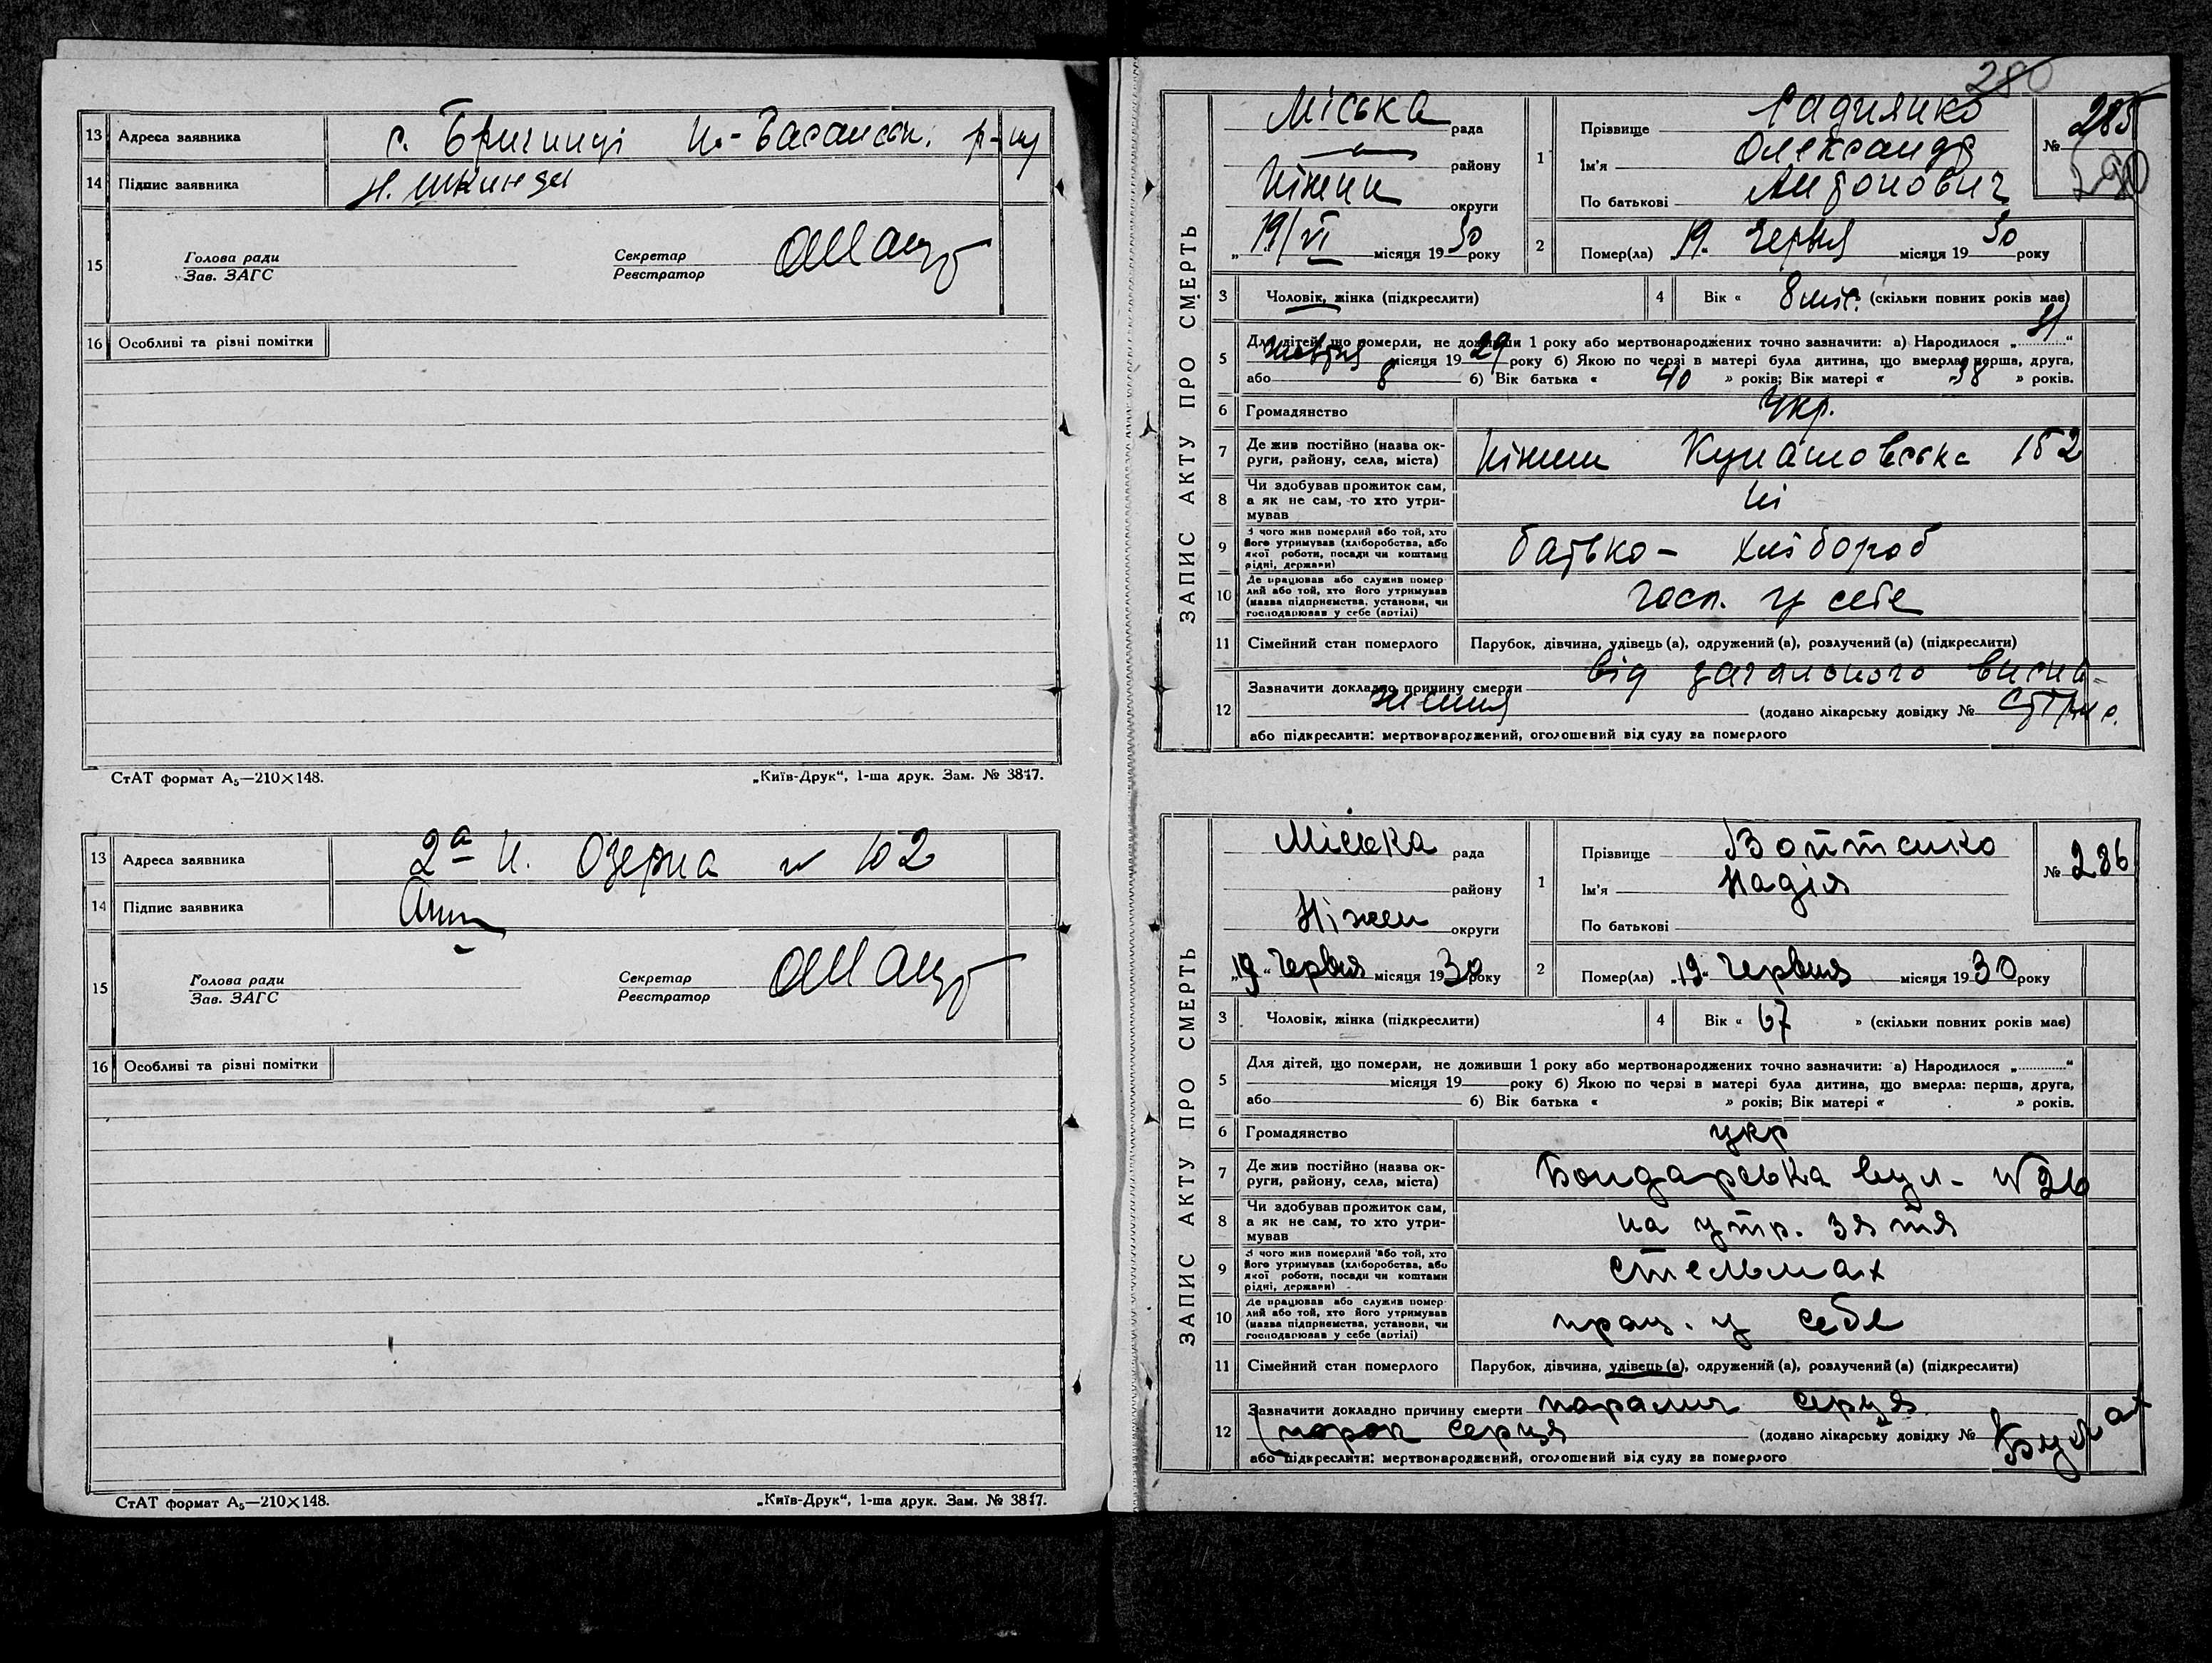 13 Адреса заявника с. Бригинці Н.-Басанськ. р-ну
14 Підпис заявника Н. Шкинда
15 Голова ради Секретар
Зав. ЗАГС Реєстратор
16 Особливі та різні помітки
СтАТ формат А5—210×148. „Київ-Друк“, 1-ша друк. Зам. № 3847.
13 Адреса заявника 2а Н. Озерна № 102
14 Підпис заявника
15 Голова ради Секретар
Зав. ЗАГС Реєстратор
16 Особливі та різні помітки
СтАТ формат А5—210×148. „Київ-Друк“, 1-ша друк. Зам. № 3847.
280
ЗАПИС АКТУ ПРО СМЕРТЬ
Міська рада
району
Ніжин округи
19/VI місяця 1930 року
1 Прізвище
Ім'я Олександр
По батькові Антонович
№ 285
290
2 Помер(ла) 19. Червня місяця 1930 року
3 Чоловік, жінка (підкреслити)
4 Вік « 8 міс. (скільки повних років має)
5 Для дітей, що померли, не доживши 1 року або мертвонароджених точно зазначити: а) Народилося „ “
Жовтня місяця 1929 року б) Якою по черзі в матері була дитина, що вмерла: перша, друга,
або 8 б) Вік батька « 40 » років; Вік матері « 38 » років.
6 Громадянство Укр.
7 Де жив постійно (назва округи, району, села, міста) Ніжин Кунашовська 152
8 Чи здобував прожиток сам, а як не сам, то хто утримував Ні
9 З чого жив померлий або той, хто його утримував (хліборобства, або якої роботи, посади чи коштами рідні, держави) батько - хлібороб
10 Де працював або служив померлий або той, хто його утримував (назва підприємства, установи, чи господарював у себе (артілі) госп. у себе
11 Сімейний стан померлого Парубок, дівчина, удівець (а), одружений (а), розлучений (а) (підкреслити)
12 Зазначити докладно причину смерти від загального висна-
ження (додано лікарську довідку №
або підкреслити: мертвонароджений, оголошений від суду за померлого
ЗАПИС АКТУ ПРО СМЕРТЬ
Міська рада
району
Ніжен округи
„19“ Червня місяця 1930 року
1 Прізвище Войтенко
Ім'я Надія
По батькові
№ 286
2 Помер(ла) „19“ Червня місяця 1930 року
3 Чоловік, жінка (підкреслити)
4 Вік « 67 » (скільки повних років має)
5 Для дітей, що померли, не доживши 1 року або мертвонароджених точно зазначити: а) Народилося „ “
місяця 19 року б) Якою по черзі в матері була дитина, що вмерла: перша, друга,
або б) Вік батька « » років; Вік матері « » років.
6 Громадянство укр
7 Де жив постійно (назва округи, району, села, міста) Бондарська вул- № 26
8 Чи здобував прожиток сам, а як не сам, то хто утримував на утр. зятя
9 З чого жив померлий або той, хто його утримував (хліборобства, або якої роботи, посади чи коштами рідні, держави) стельмах
10 Де працював або служив померлий або той, хто його утримував (назва підприємства, установи, чи господарював у себе (артілі) прац. у себе
11 Сімейний стан померлого Парубок, дівчина, удівець (а), одружений (а), розлучений (а) (підкреслити)
12 Зазначити докладно причину смерти параліч серця
(порок серця (додано лікарську довідку №
або підкреслити: мертвонароджений, оголошений від суду за померлого